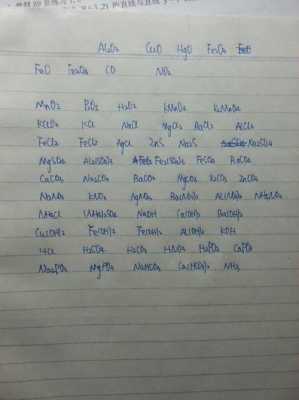 Al₂O₃ CuO HgO Fe₂O₃
FeO Fe₃O₄ CO NO₂
MnO₂ P₂O₅ H₂O₂ KMnO₄ K₂MnO₄
KClO₃ KCl NaCl MgCl₂ BaCl₂ AlCl₃
FeCl₃ FeCl₂ AgCl ZnS Na₂S Na₂SO₄
MgSO₄ Al₂(SO₄)₃ Fe₂(SO₄)₃ FeSO₄ BaSO₄
CaCO₃ Na₂CO₃ BaCO₃ MgCO₃ K₂CO₃ ZnCO₃
NaNO₃ KNO₃ AgNO₃ Ba(NO₃)₂ Al(NO₃)₃ NH₄NO₃
NH₄Cl (NH₄)₂SO₄ NaOH Ca(OH)₂ Ba(OH)₂
Cu(OH)₂ Fe(OH)₃ Fe(OH)₂ Al(OH)₃ KOH
HCl H₂SO₄ H₂CO₃ HNO₃ H₃PO₄
Na₃PO₄ NaHCO₃ Ca(HCO₃)₂ NH₃